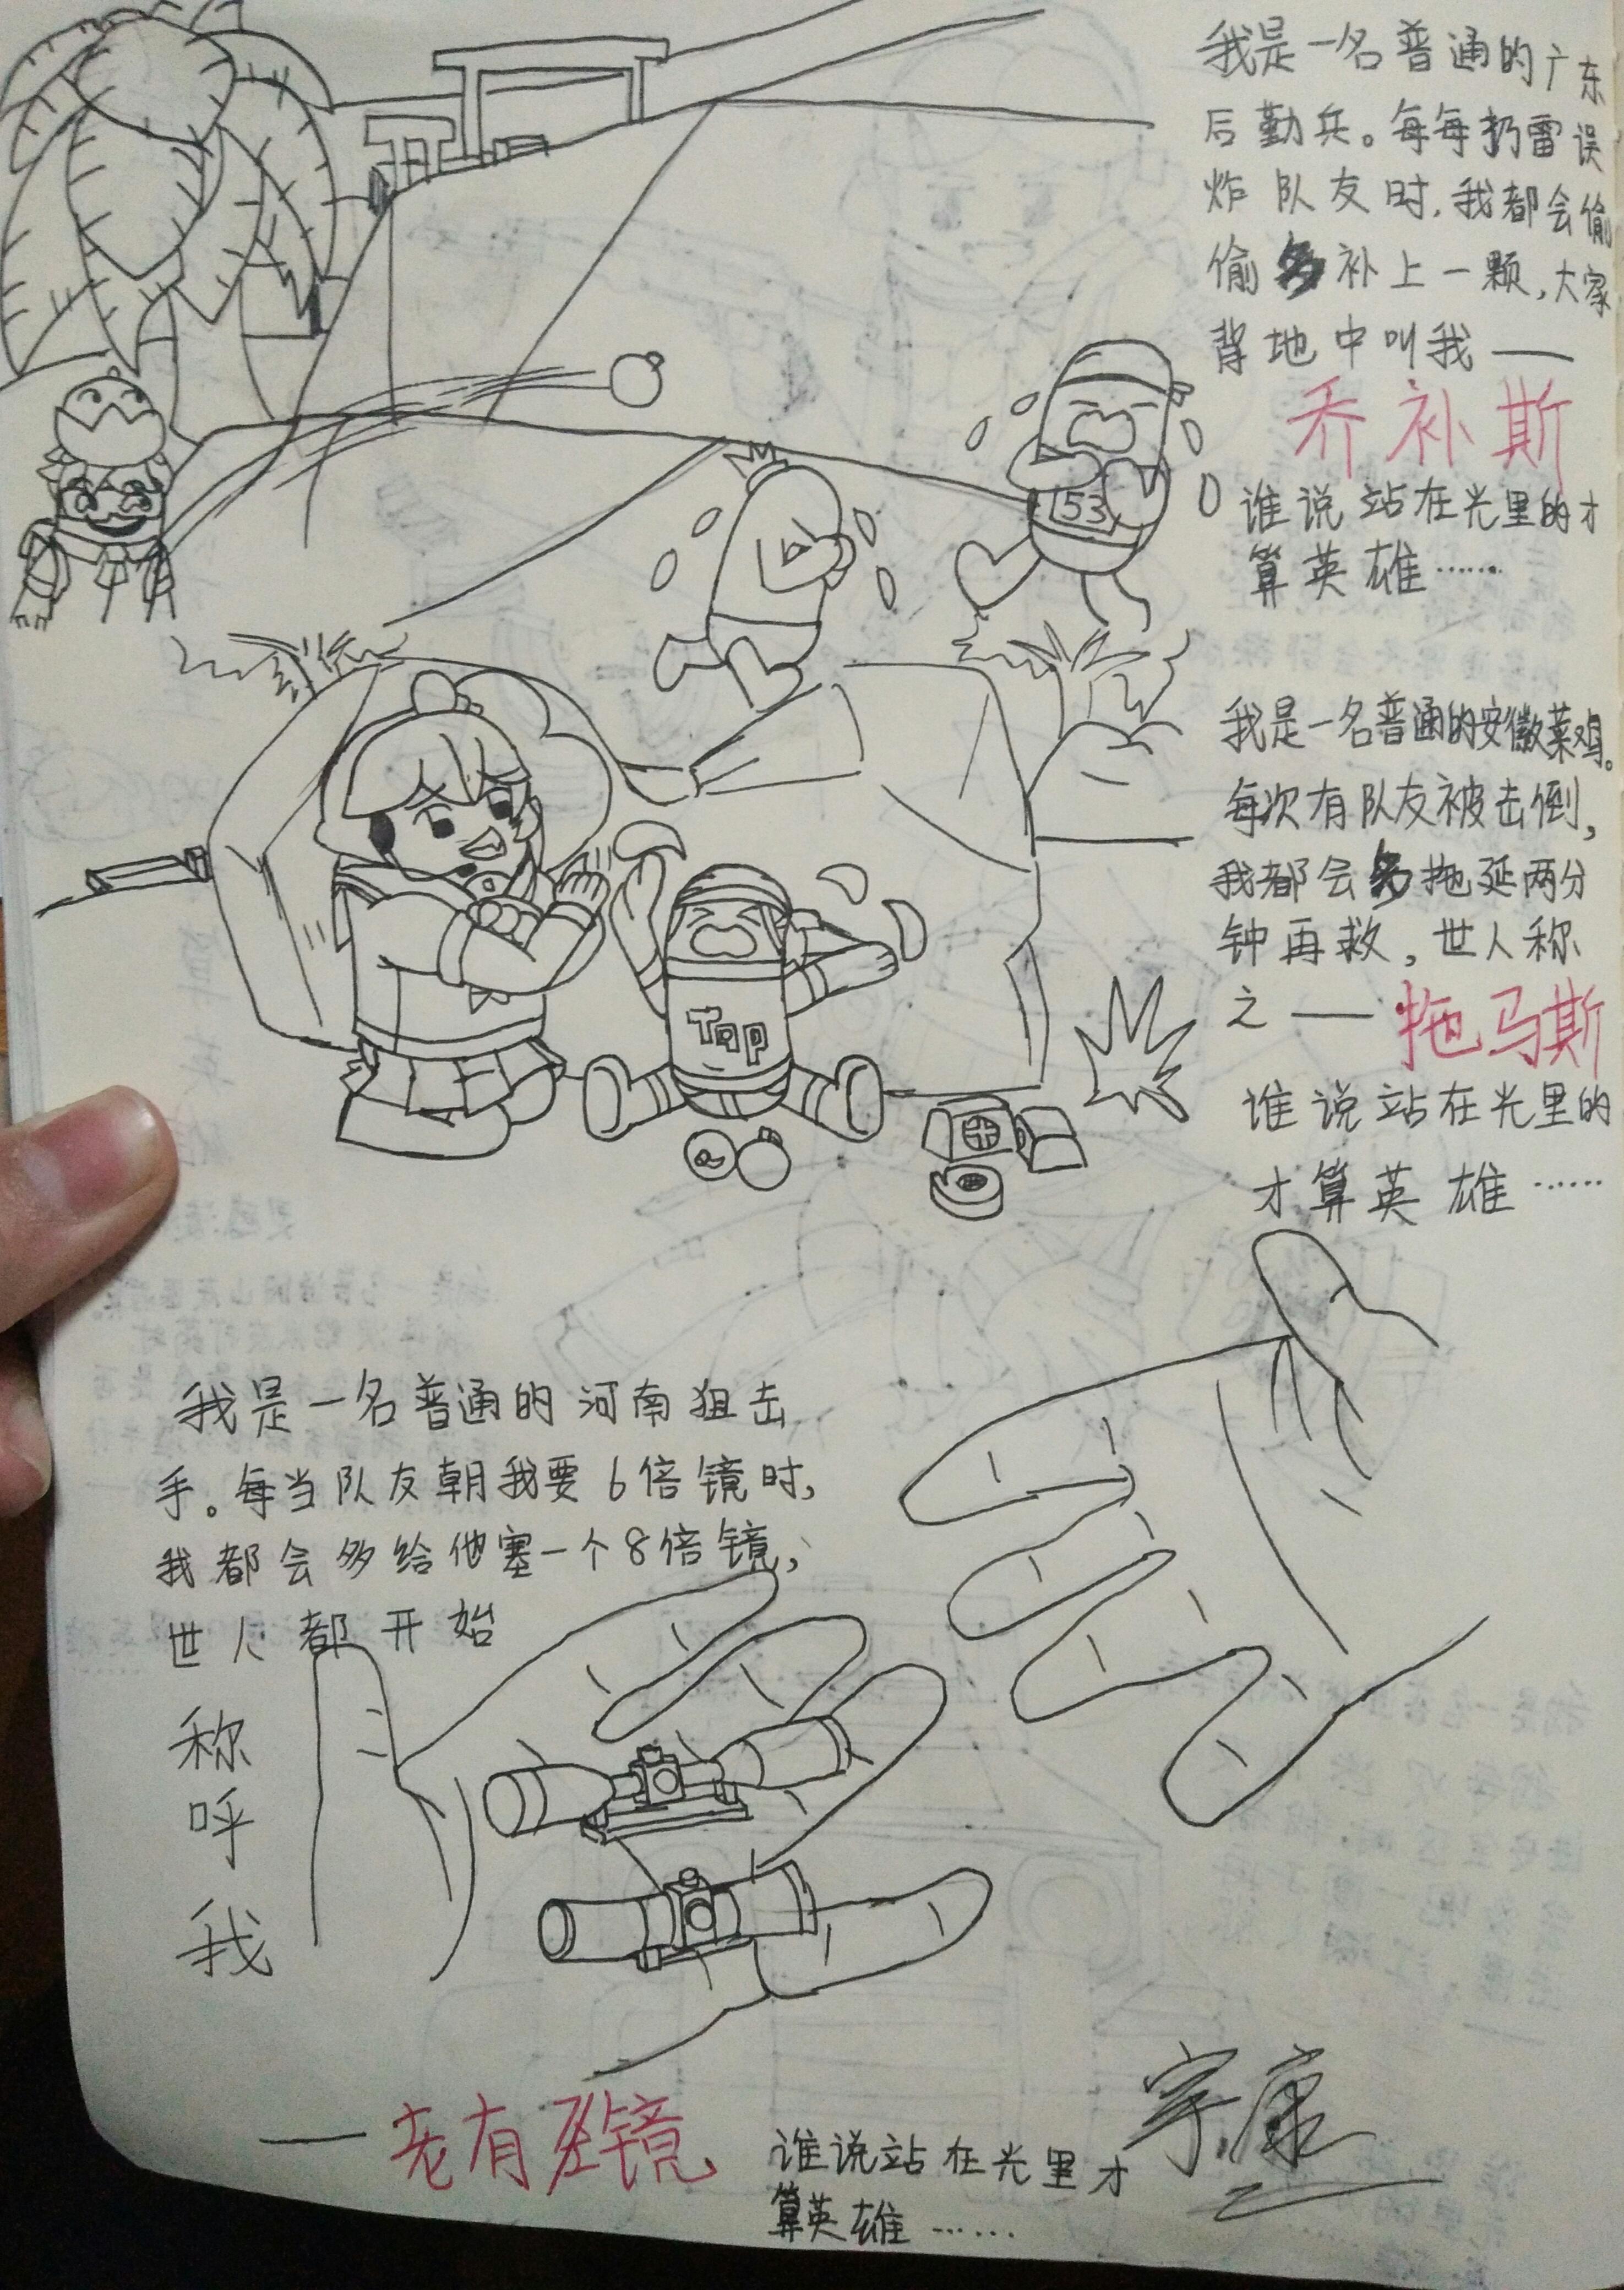 我是一名普通的广东
后勤兵。每每扔雷误
炸队友时,我都会偷
偷多补上一颗,大家
背地中叫我——
乔补斯
谁说站在光里的才
算英雄……
53
我是一名普通的安徽菜鸡。
每次有队友被击倒,
我都会多拖延两分
钟再救,世人称
之——拖马斯
谁说站在光里的
才算英雄……
Tap
我是一名普通的河南狙击
手。每当队友朝我要6倍镜时,
我都会多给他塞一个8倍镜,
世人都开始
称
呼
我
——老有 镜
谁说站在光里才
算英雄……